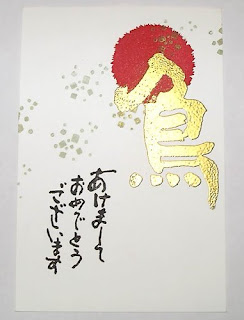 鳥
あけまして
おめでとう
ございます